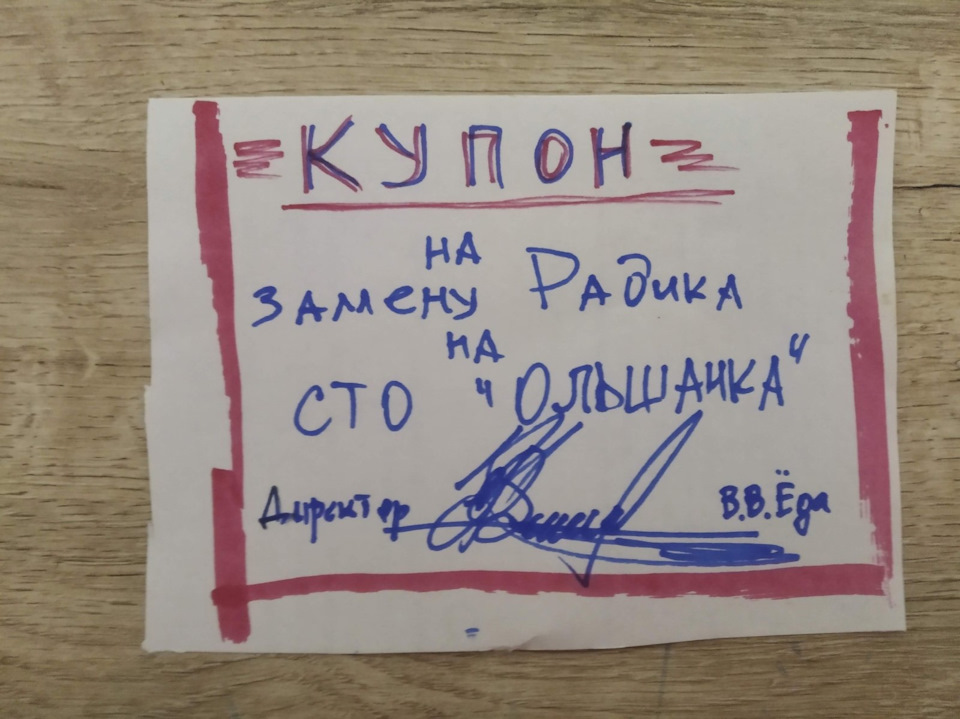 КУПОН
НА
ЗАМЕНУ РАДИКА
НА
СТО "ОЛЬШАНКА"
Директор В.В.Ёда